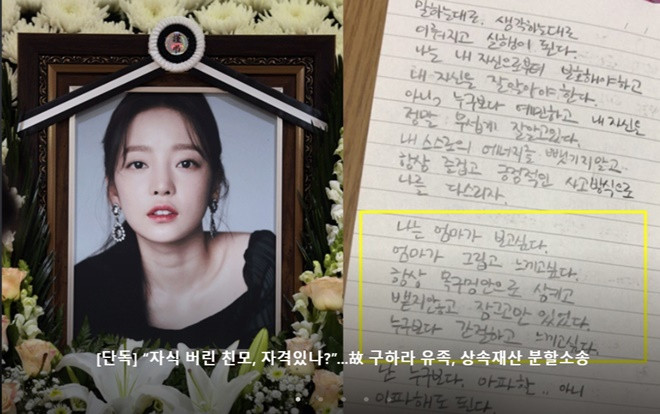 謹弔
말하는대로. 생각하는대로
이뤄지고 실행이 된다.
나는 내 자신으로부터 보호해야하고
내 자신을 잘알아야 한다.
아니, 누구보다 예민하고 내 자신은
정말 무섭게 잘알고있다.
내 스스로의 에너지를 뺏기지말고
항상 즐겁고 긍정적인 사고방식으로
나를 다스리자.
나는 엄마가 보고싶다.
엄마가 그립고 느끼고싶다.
항상 목구멍안으로 삼키고
뱉지안고 잠그고만 있었다.
누구보다 간절하고 느끼고싶다.
[단독] “자식 버린 친모, 자격있나?”...故 구하라 유족, 상속재산 분할소송
난 누구보다. 아파한.. 아니
아파해도 된다.